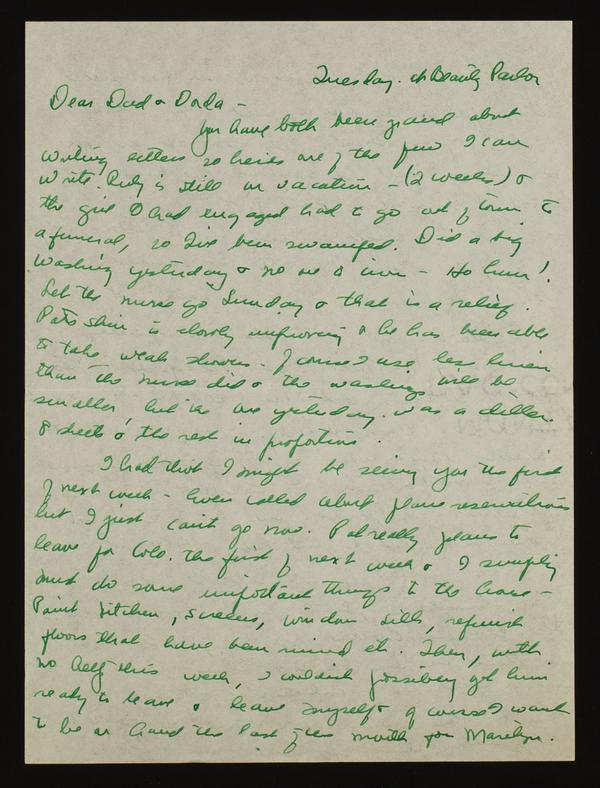 Tuesday. At Beauty Parlor
Dear Dad & Dorda -
You have both been grand about
writing letters so here's one of the few I can
write. Ruby is still on vacation - (2 weeks) &
the girl I had engaged had to go out of town to
a funeral, so I've been swamped. Did a big
washing yesterday & no one to iron - Ho hum!
Let the nurse go Sunday & that is a relief.
Pat's skin is slowly improving & he has been able
to take weak showers. Of course I use less linen
than the nurse did & the washings will be
smaller, but the one yesterday was a diller.
8 sheets & the rest in proportion.
I had that I might be seeing you the first
of next week - Even called about plane reservations
but I just can't go now. Pat really plans to
leave for Colo. the first of next week & I simply
must do some important things to the house -
Paint kitchen, screens, window sills, refinish
floors that have been ruined etc. Then, with
no help this week, I couldn't possibly get him
ready to leave & leave myself & of course I want
to be on hand the last of the month for Marilyn.